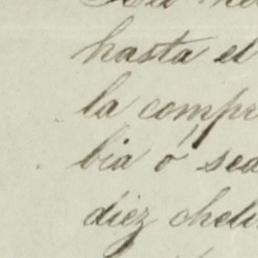 hasta el
la compr
bia ó sea
diez cheli